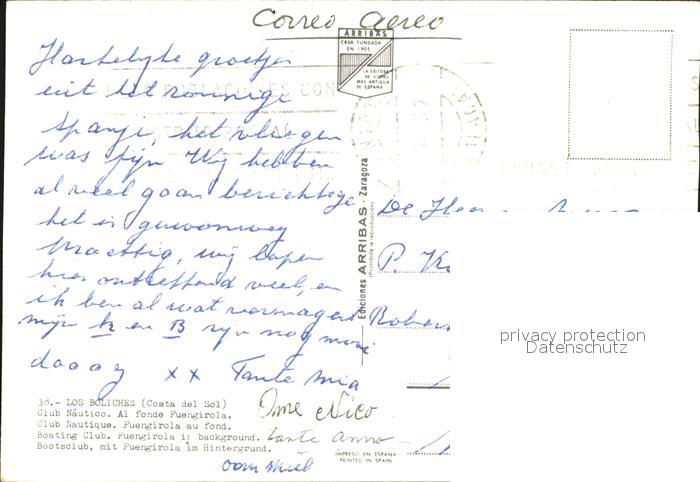 Correo Aereo
ARRIBAS
CASA FUNDADA
EN 1905
LA EDITORA
DE VISTAS
MAS ANTIGUA
DE ESPAÑA
Hartelijke groetjes
uit het zonnige
Spanje, het vliegen
was fijn Wij hebben
al veel gaan
het is gewoonweg
Prachtig, wij lopen
hier ontzettend veel, en
ik ben al wat vermagerd
mijn en B zijn nog mooi
daaag x x Tante Mia
Ome Nico
Tante Anna
oom Miel
De Heer
P.
Ediciones ARRIBAS - Zaragoza
(Prohibida la reproducción)
38.- LOS BOLICHES (Costa del Sol)
Club Náutico. Al fondo Fuengirola.
Club Nautique. Fuengirola au fond.
Boating Club. Fuengirola in background.
Bootsclub, mit Fuengirola im Hintergrund.
IMPRESO EN ESPAÑA
PRINTED IN SPAIN
privacy protection
Datenschutz